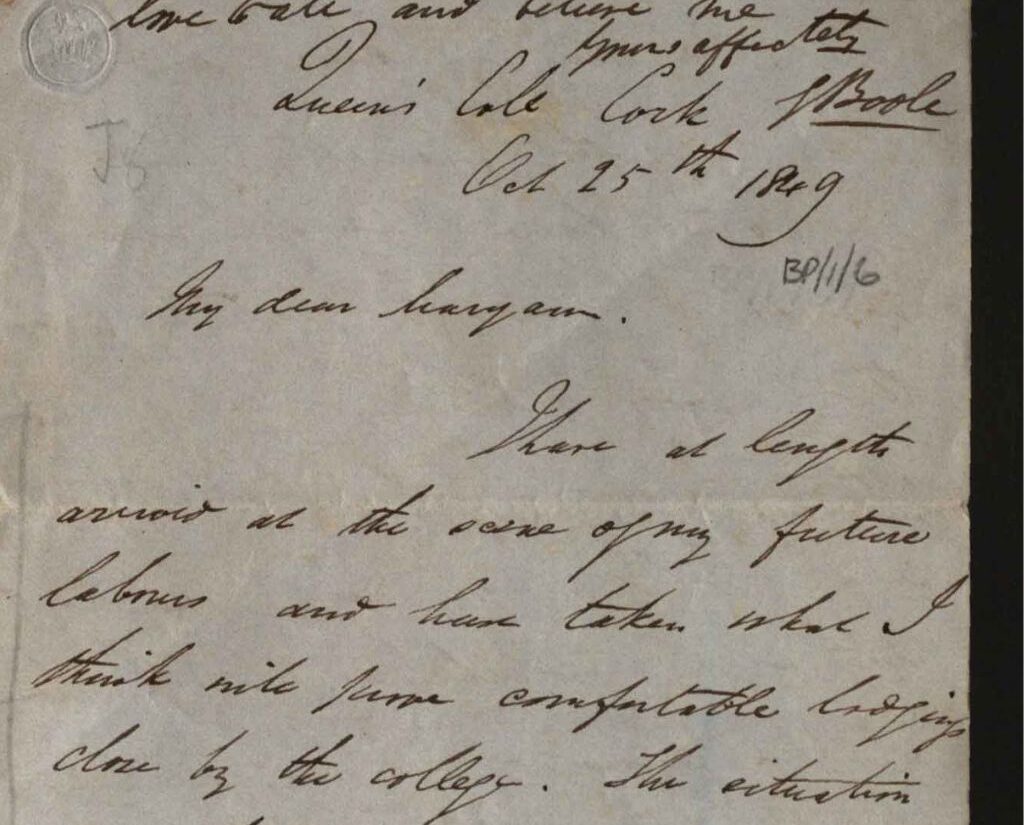 love to all and believe me
yours affectely
GBoole
Queen's Coll Cork
Oct 25th 1849
J8
BP/1/6
My dear Maryann.
I have at length
arrived at the scene of my future
labours and have taken what I
think will prove comfortable lodgings
close by the college. The situation